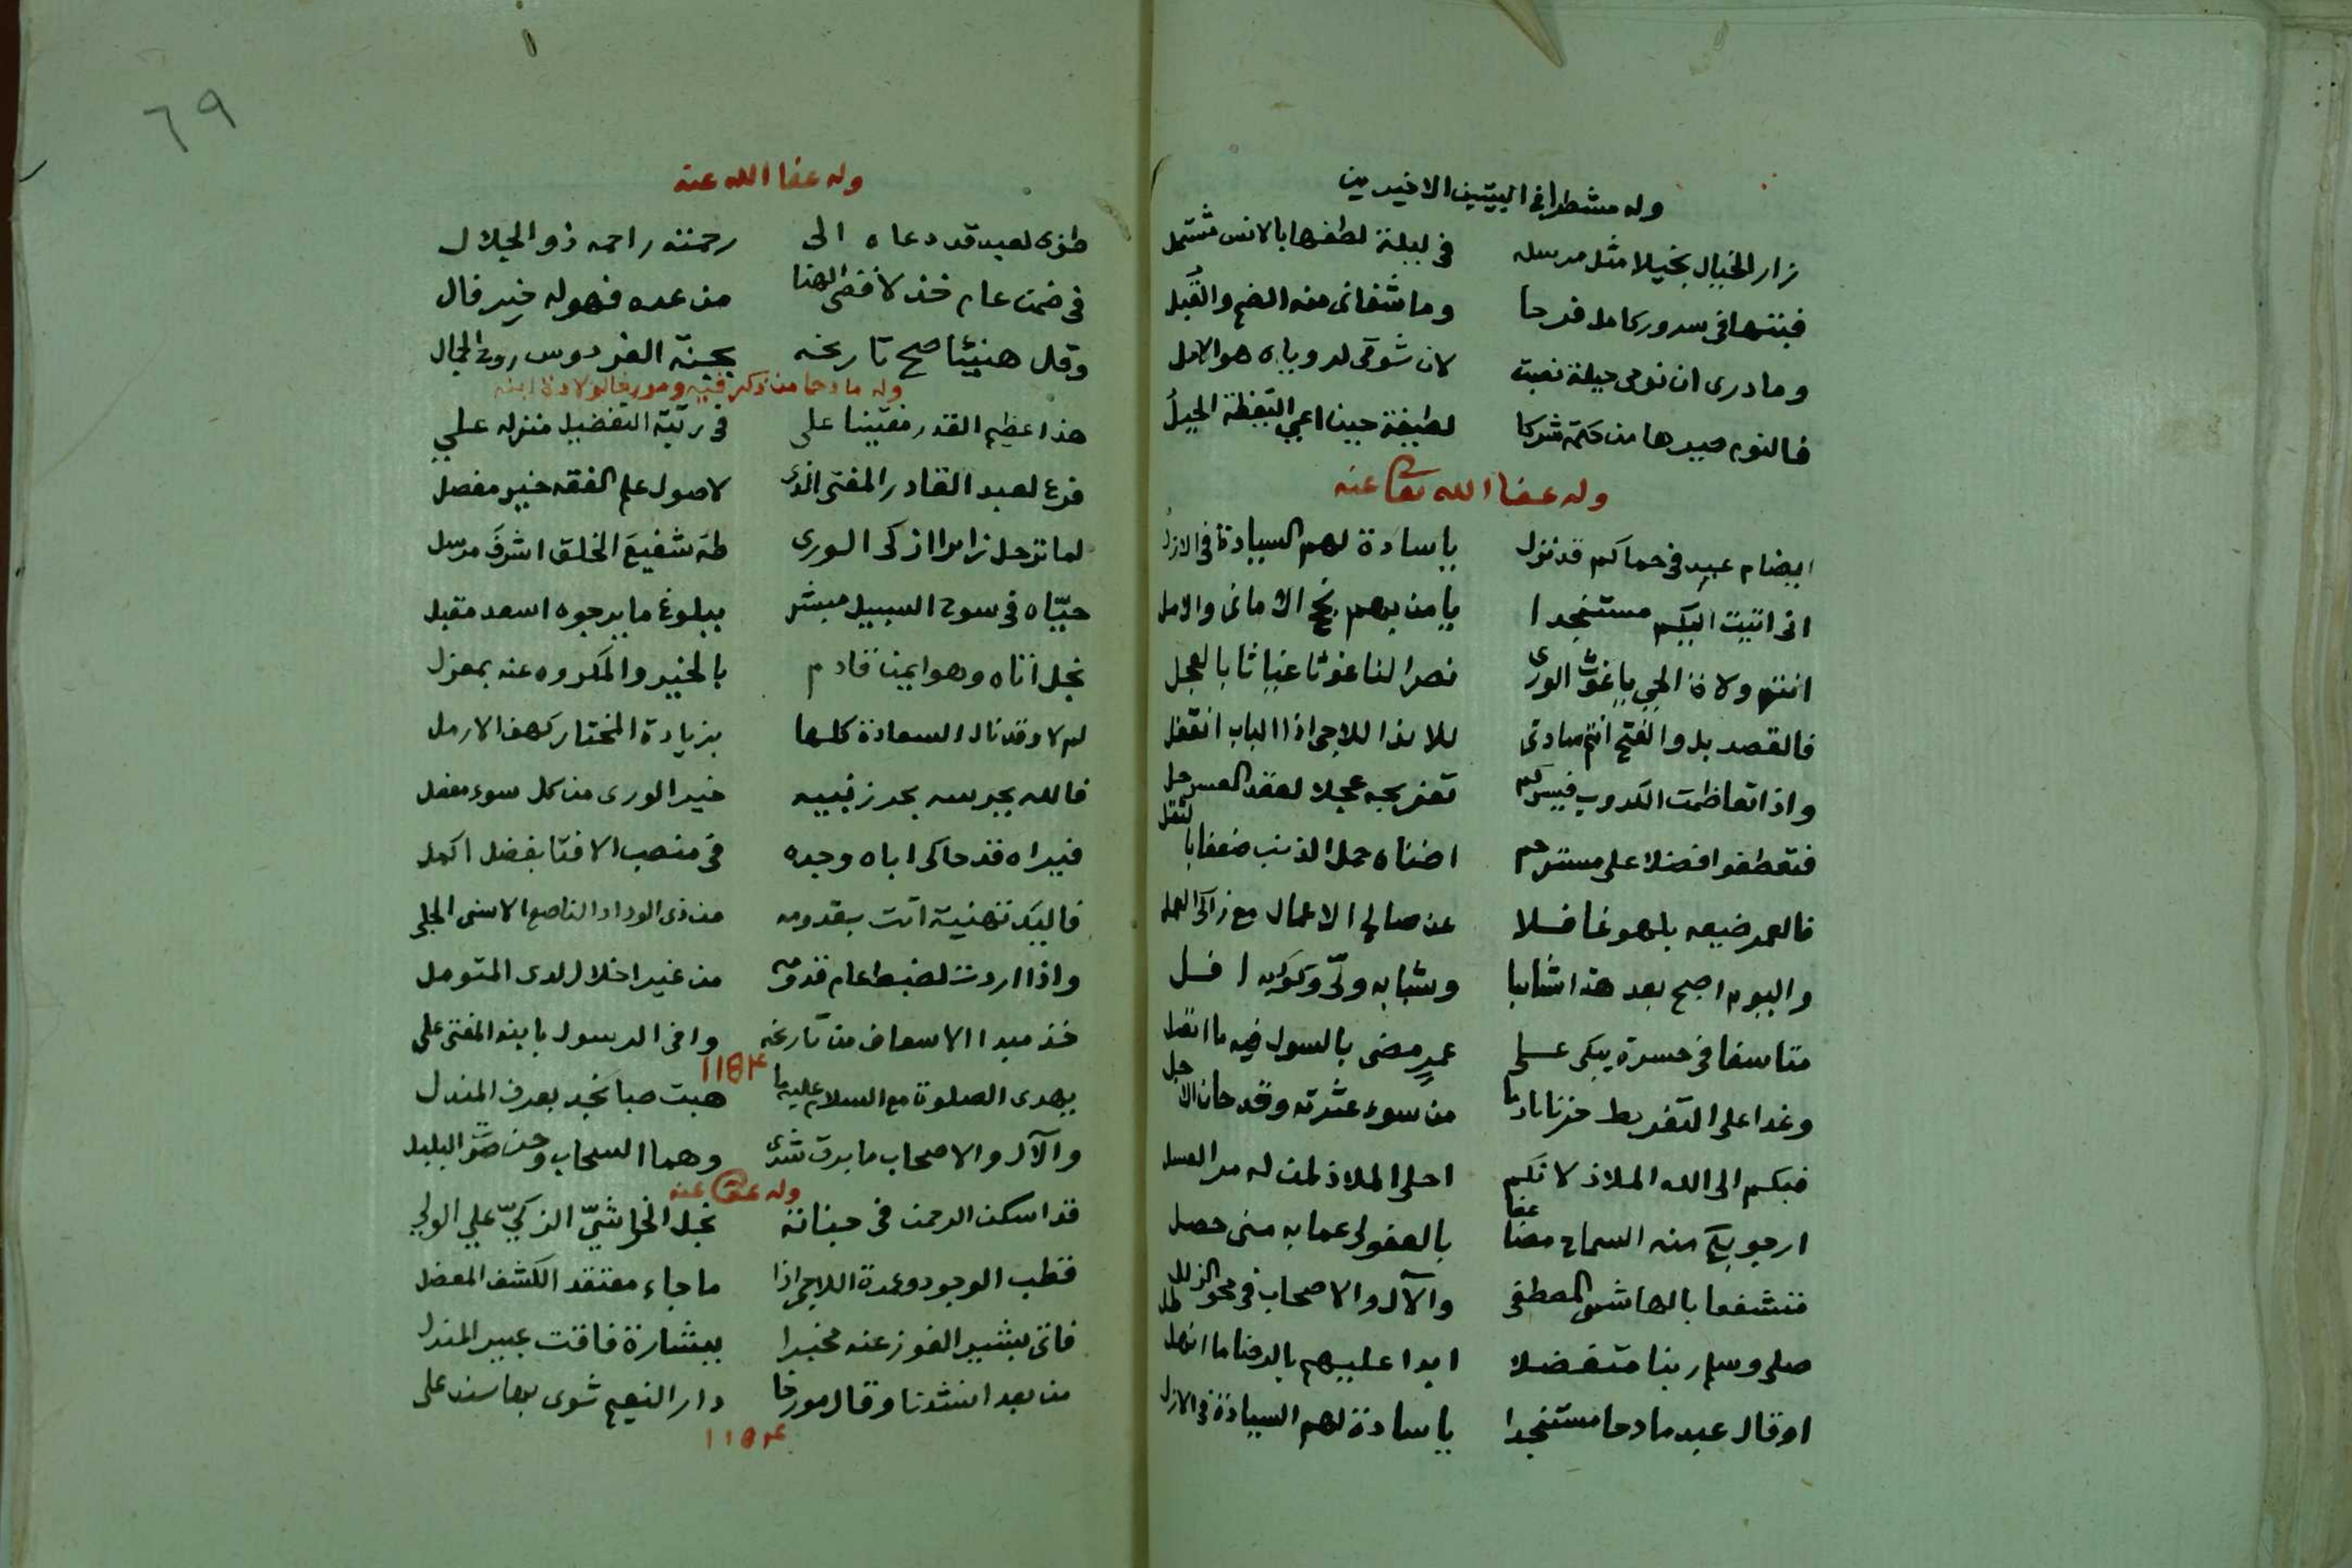 وله مشطرا في البيتين الاخيرين
زار الخيال بخيلا مثل مرسله في ليلة لطفها بالانس مشتمل
فبتها في سرور كامل فرحا وما شفاني منه الضم والقبل
وما درى ان نومي حيلة نصبت لان شوقي لروياه هو الامل
فالنوم صيرها من حكمة شركا لطيفة حين اعي اليقظة الحيل
وله عفا الله تعا عنه
ايضام عبد في حماكم قد نزل يا سادة لهم السيادة في الازل
اني اتيت اليكم مستنجدا يا من بهم نجح الاماني والامل
انتم ولاة الحي يا غوث الورى نصرا لنا غوثا غياثا بالعجل
فالقصد بل والفتح انتم سادتي للائذ اللاجي اذا الباب انقفل
واذا تعاظمت الكروب فيسركم تفريجه عجلا لعقد العسر حل
فتعطفوا فضلا على مسترحم اضناه حمل الذنب ضعفا بالثقل
فالعمر ضيعه بلهو غافلا عن صالح الاعمال مع زاكي العمل
واليوم اصبح بعد هذا شائبا وشبابه ولّى وكوكبه افل
متاسفا في حسرة يبكي على عمرٍ مضى بالسول فيه ما اتصل
وغدا على التفريط حزنا نادما من سوء عثرته وقد حان الاجل
فبكم الى الله الملاذ لانكم احلى الملاذ لمن له مر العسل
ارجو بكم منه السماح عفا بالعفو لي عما به مني حصل
متشفعا بالهاشمي المصطفى والآل والاصحاب في محو الزلل
صلى وسلم ربنا متفضلا ابدا عليهم بالرضا ما انهل طل
او قال عبد مادحا مستنجدا يا سادة لهم السيادة في الازل
٦٩
وله عفا الله عنه
طوبى لعبد قد دعاه الى رحمته راحمه ذو الجلال
في ضمن عام خذ لاقضى الهنا من عده فهو له خير فال
وقل هنيئا صح تاريخه بجنة الفردوس روى الجمال
وله مادحا من ذكر فيه ومورخا لولادة ابنه
هذا عظيم القدر مفتينا علي في رتبة التفضيل منزله علي
فرع لعبد القادر المفتي الذي لاصول علم الفقه خير مفصل
لما ترحل زائرا ازكى الورى طه شفيع الخلق اشرف مرسل
حيّاه في سوح السبيل مبشر ببلوغ ما يرجوه اسعد مقبل
نجل اتاه وهو ايمن قادم بالخير والمكروه عنه بمعزل
لم لا وقد نال السعادة كلها بزيارة المختار كهف الارمل
فالله يحرسه بحرز نبيه خير الورى من كل سوء معضل
فيراه قد حاكى اباه وجده في منصب الافتا بفضل اكمل
فاليك تهنية اتت بقدومه من ذي الوداد الناصع الاسنى الجلي
واذا اردت لضبط عام قدومه من غير اخلال لدى المتومل
خذ مبدا الاسعاف من تاريخه وافى الرسول بابنه المفتى علي
١١٥٤
يهدى الصلوة مع السلام عليه ما هبت صبا نجد بعرف المندل
والآل والاصحاب ما برق شرى وهما السحاب وحن صوت البلبل
وله عفي عنه
قد اسكن الرحمن في جناته نجل الخراشيّ الزكيّ علي الولي
قطب الوجود وعمدة اللاجي اذا ما جاء مفتقد الكشف المعضل
فاتى بشير الفوز عنه مخبرا ببشارة فاقت عبير المندل
من بعد انشدنا وقال مورخا دار النعيم ثوى بها سند علي
١١٥٤